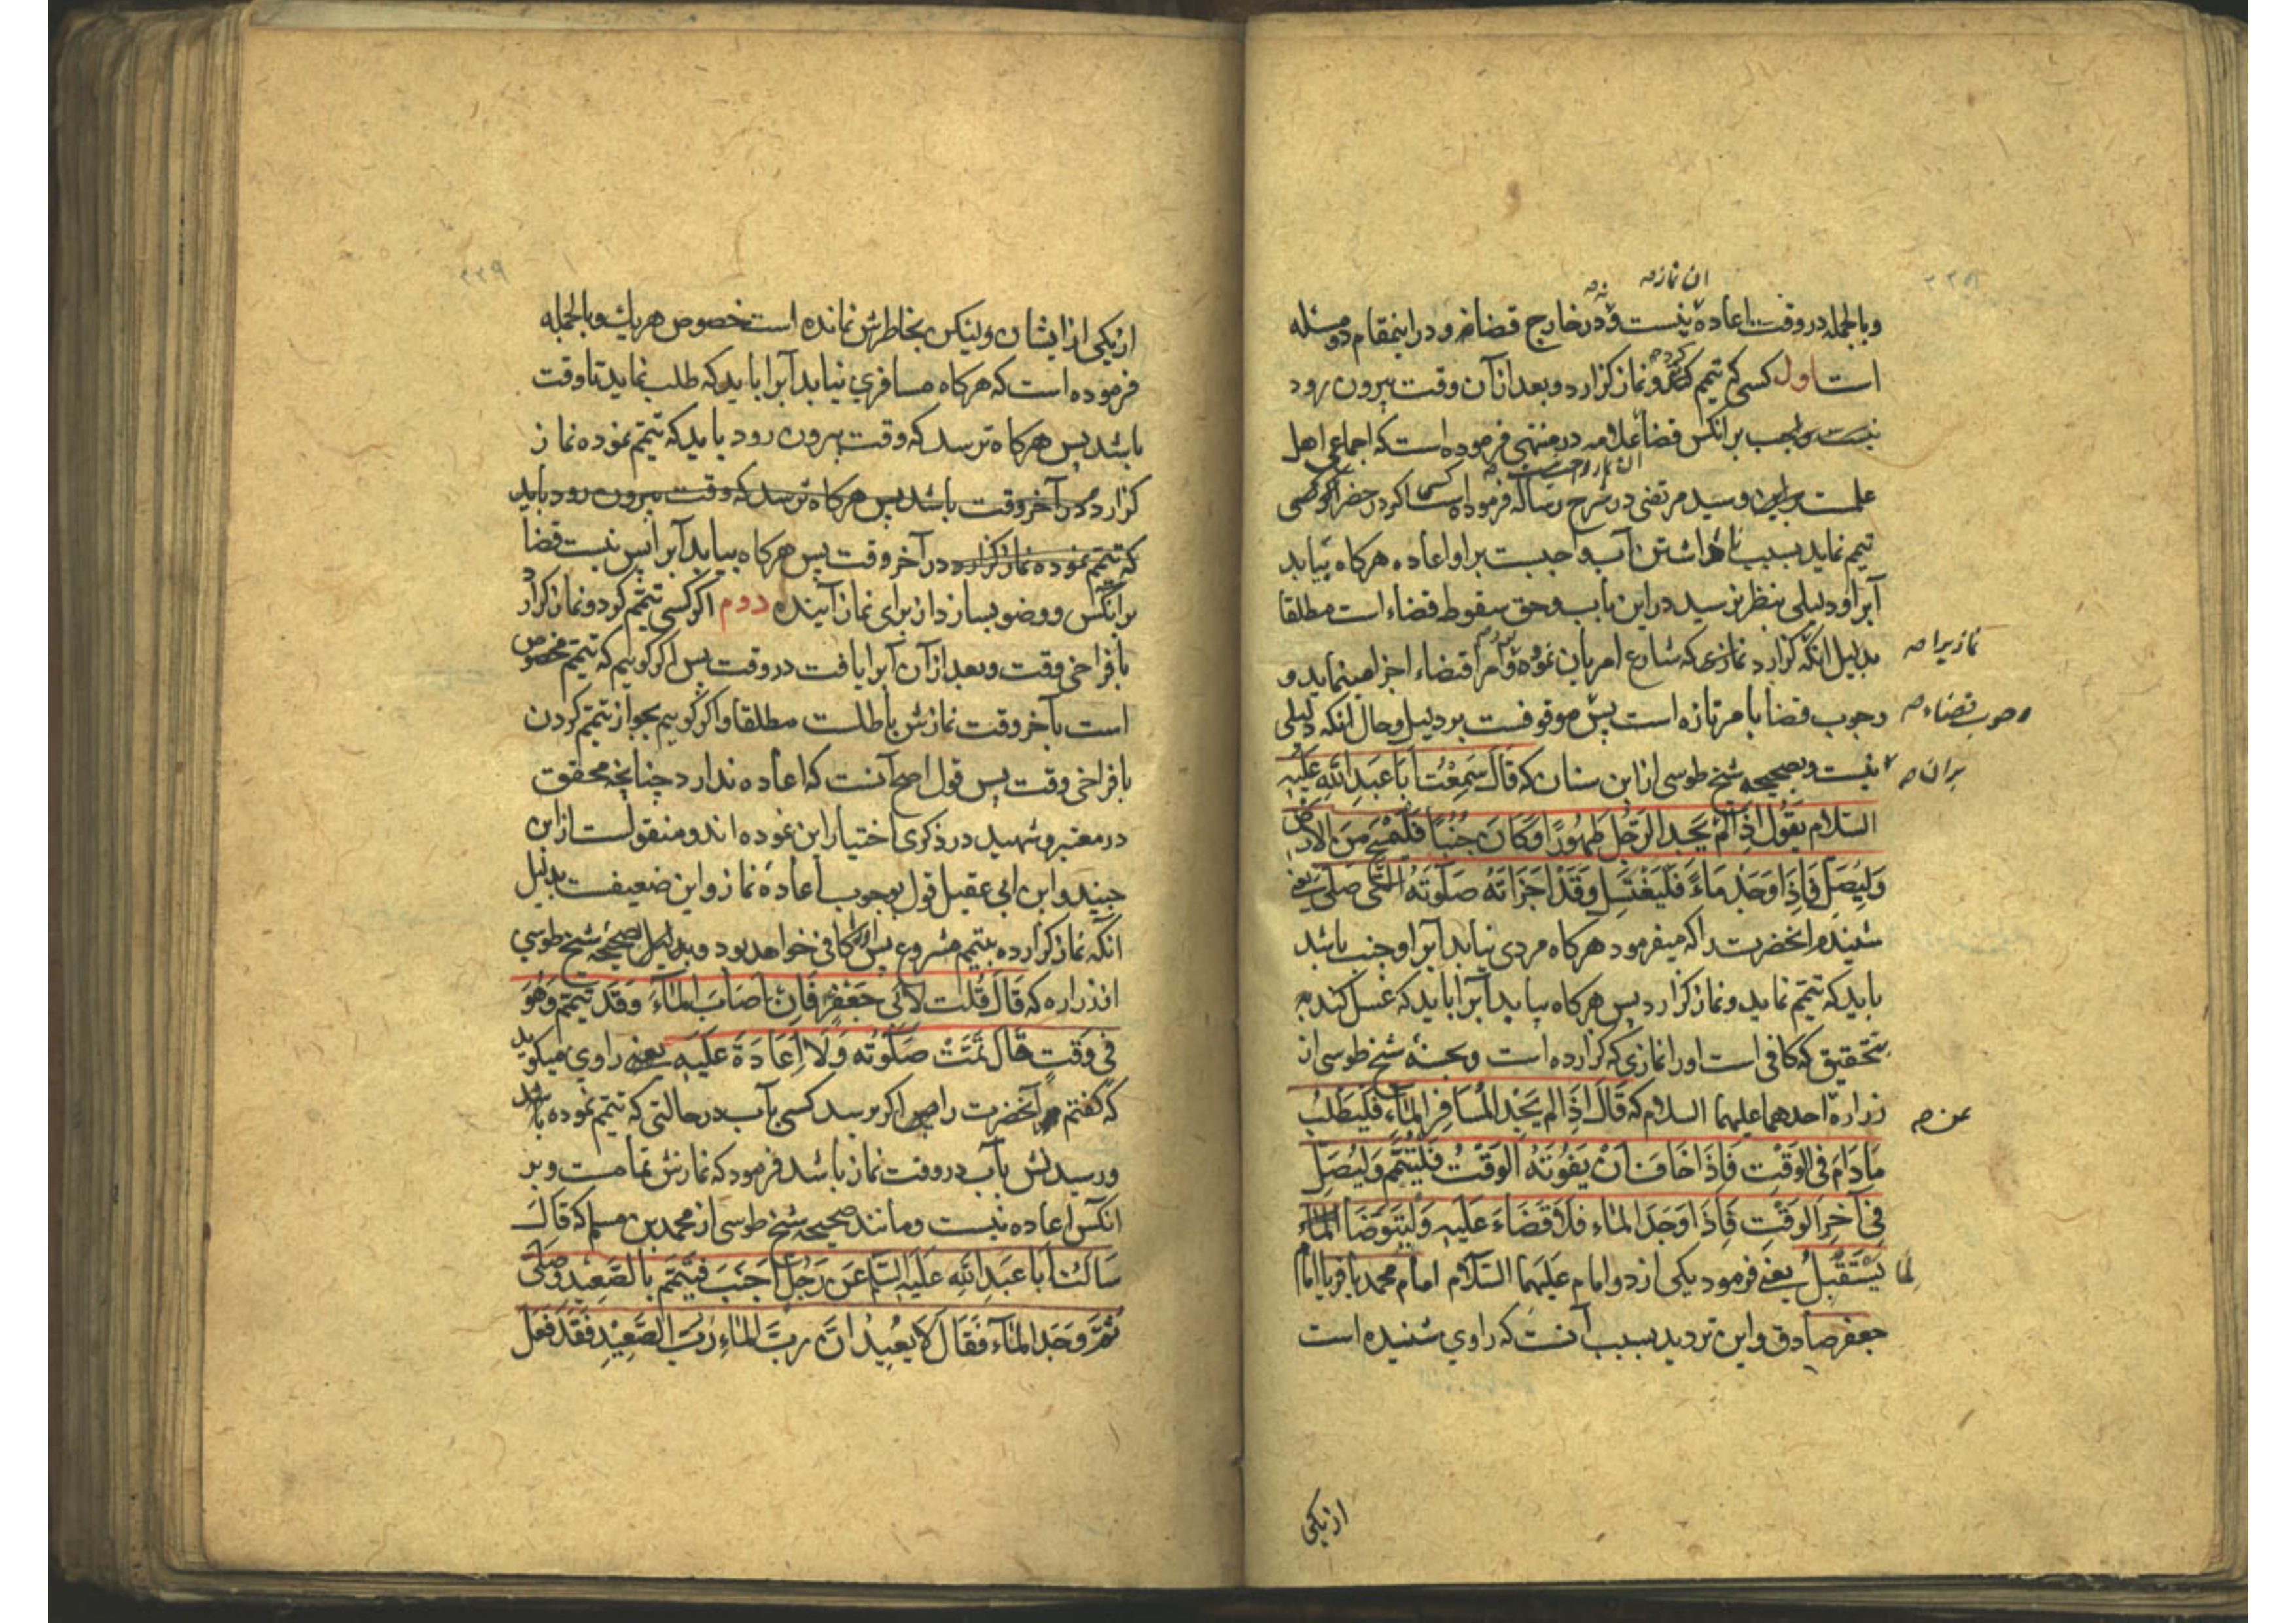 ۲۲۸
ان نماز
وبالجمله در وقت اعاده نیست و در خارج قضا نه و در اینمقام دو مسئله
است اول کسی که تیمم کند و نماز کزارد و بعد از آن وقت بیرون رود
نیست واجب بر انکس قضا علامه در منتهی فرموده است که اجماعی اهل
علمست براین و سید مرتضی در شرح رساله فرموده است اکر در حضر کسی
تیمم نماید بسبب نداشتن آب واجبست براو اعاده هرکاه بیابد
آبرا و دلیلی بنظر نرسید در این باب و حق سقوط قضاء است مطلقا
بدلیل انکه کزارد نمازی که شارع امر بان نموده و امر اقتضاء اجزا مینماید و
نمازیرا
وجوب قضا بامر تازه است پس موقوفست بر دلیل و حال انکه دلیلی
وجوب قضاء
نیست و بصحیحه شیخ طوسی از ابن سنان که قَالَ سَمِعْتُ اَبَا عَبدِ اللهِ عَلَیْهِ
بران
السّلام یَقُولُ اِذَا لَمْ یَجِدِ الرَّجُلُ طَهُورًا وَکَانَ جُنُبًا فَلْیَمْسَحْ مِنَ الْاَرْضِ
وَلْیُصَلِّ فَاِذَا وَجَدَ مَاءً فَلْیَغْتَسِلْ وَقَدْ اَجْزَاَتْهُ صَلٰوتُهُ الَّتِی صَلّٰی یعنی
شنیدم انحضرت را که میفرمود هرکاه مردی نیابد آبرا و جنب باشد
باید که تیمم نماید و نماز کزارد پس هرکاه بیابد آبرا باید که غسل کند
بتحقیق که کافی است اورا نمازی که کزارده است و بحسنهٔ شیخ طوسی از
زراره احدهما علیهما السلام که قَالَ اِذَا لَمْ یَجِدِ الْمُسَافِرُ الْمَاءَ فَلْیَطْلُبْ
عن
مَادَامَ فِی الْوَقْتِ فَاِذَا خَافَ اَنْ یَفُوتَهُ الْوَقْتُ فَلْیَتَیَمَّمْ وَلْیُصَلِّ
فِی آخِرِ الْوَقْتِ فَاِذَا وَجَدَ الْمَاءَ فَلَا قَضَاءَ عَلَیْهِ وَلْیَتَوَضَّأْ
لِمَا یَسْتَقْبِلُ یعنی فرمود یکی از دو امام علیهما السّلام امام محمد باقر یا امام
جعفر صادق و این تردید بسبب آنست که راوی شنیده است
از یکی
۲۲۹
از یکی از ایشان ولیکن بخاطرش نمانده است خصوص هریك وبالجمله
فرموده است که هرکاه مسافری نیابد آبرا باید که طلب نماید تا وقت
باشد پس هرکاه ترسد که وقت بیرون رود باید که تیمم نموده نماز
کزارد در آخر وقت باشد پس هرکاه ترسد که وقت بیرون رود باید
که تیمم نموده نماز کزارد در آخر وقت پس هرکاه بیابد آبرا پس نیست قضا
بر انکس و وضو بسازد از برای نماز آینده دوم اکر کسی تیمم کرد و نماز کزارد
بافراخی وقت و بعد از آن آبرا یافت در وقت پس اکر کوییم که تیمم مخصوص
است بآخر وقت نمازش باطلست مطلقا و اکر کوییم بجواز تیمم کردن
بافراخی وقت پس قول اصح آنست که اعاده ندارد چنانچه محقق
در معتبر و شهید در ذکری اختیار این نموده اند و منقولست از ابن
جنید و ابن ابی عقیل قول بوجوب اعادهٔ نماز و این ضعیفست بدلیل
انکه نماز کزارده بتیمم مشروع پس کافی خواهد بود و بدلیل صحیحهٔ شیخ طوسی
از زراره که قَالَ قُلْتُ لِاَبِی جَعْفَرٍ فَاِنْ اَصَابَ الْمَاءَ وَقَدْ تَیَمَّمَ وَهُوَ
فِی وَقْتٍ قَالَ تَمَّتْ صَلٰوتُهُ وَلَا اِعَادَةَ عَلَیْهِ یعنی راوی میکوید
که کفتم آنحضرت را اکر برسد کسی بآب در حالتی که تیمم نموده باشد
و رسیدنش بآب در وقت نماز باشد فرمود که نمازش تمامست و بر
انکس اعاده نیست و مانند صحیحه شیخ طوسی از محمد بن مسلم که قَالَ
سَاَلْتُ اَبَا عَبدِ اللهِ عَلَیْهِ السّلم عَنْ رَجُلٍ اَجْنَبَ فَتَیَمَّمَ بِالصَّعِیْدِ وَصَلّٰی
ثُمَّ وَجَدَ الْمَآءَ فَقَالَ لَا یُعِیْدُ اِنَّ رَبَّ الْمَاءِ رَبُّ الصَّعِیْدِ فَقَدْ فَعَلَ